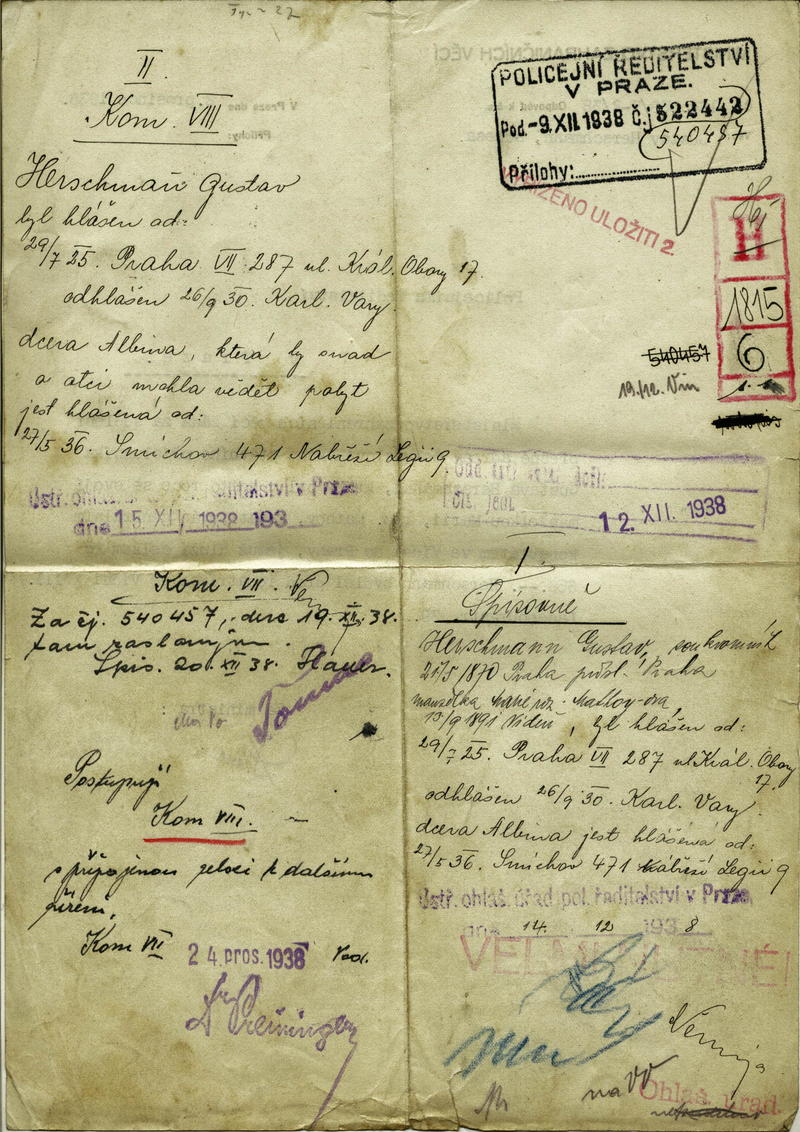 II
Kom. VIII
Herschman Gustav
byl hlášen od:
29/7 25. Praha VII 287 ul. Král. Obory 17.
odhlášen 26/9 30. Karl. Vary
dcera Albina, která by snad
o otci mohla vědět pobyt
jest hlášená od:
27/5 36. Smíchov 471 Nábřeží Legií 9
Ústř. ohláš. ředitelství v Praze
dne 15. XII. 1938 193
POLICEJNÍ ŘEDITELSTVÍ
V PRAZE.
Pod. -9.XII.1938 Č.j. 522442
540457
Přílohy:
NAŘÍZENO ULOŽITI 2.
Há
H
1815
6
540457
19./12.
12. XII. 1938
Kom. VII.
Za čj. 540457, dne 19. XII. 38.
tam
Spis. 20. XII 38. Hauer.
Postupuji
Kom VIII.
s připojenou k dalšímu
řízení,
Kom VII 24. pros. 1938
Dr Preininger
I.
Spisovně
Herschmann Gustav, soukromník
21/5 1870 Praha přísl. Praha
manželka Marie roz.
13/9 1891 Vídeň, byl hlášen od:
29/7 25. Praha VII 287 ul Král. Obory
17.
odhlášen 26/9 30. Karl. Vary
dcera Albina jest hlášená od:
27/5 36. Smíchov 471 nábřeží Legií 9
Ústř. ohlaš. úřad pol. ředitelství v Praze,
dne 14. 12 1938
na VV
Ohlaš. úřad.